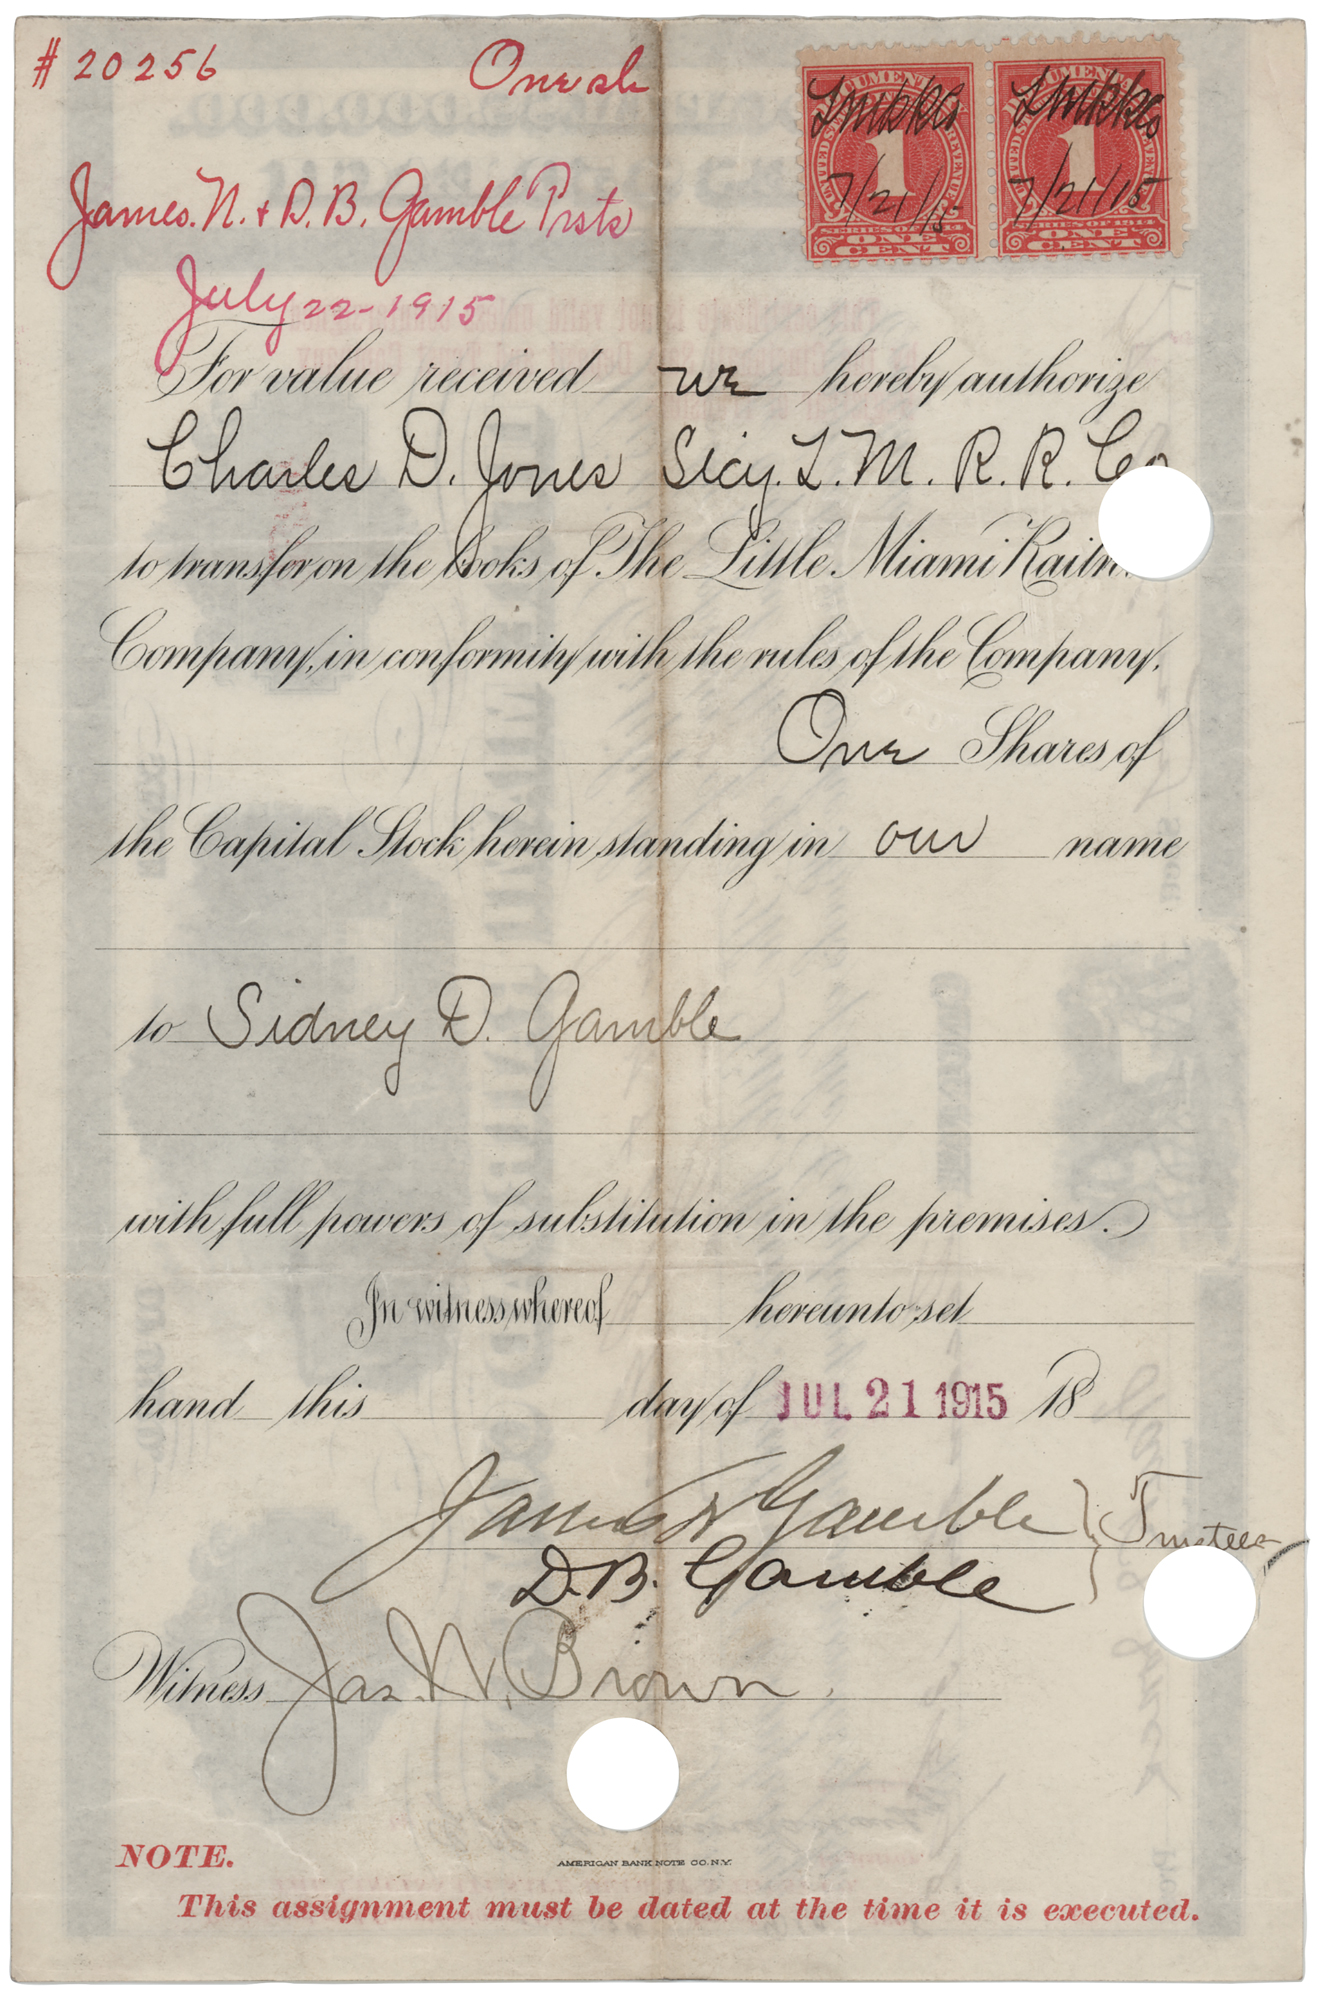 # 20256 One sh
James. N. + D. B. Gamble Trsts
July 22-1915
UNITED STATES DOCUMENTARY INTERNAL REVENUE
L M R R Co
7/21/15
1
SERIES OF 1914
ONE CENT
L M R R Co
7/21/15
1
SERIES OF 1914
ONE CENT
For value received we hereby authorize
Charles D. Jones Secy. L. M. R. R. Co
to transfer on the books of The Little Miami Railr
Company, in conformity with the rules of the Company.
One Shares of
the Capital Stock herein standing in our name
to Sidney D. Gamble
with full powers of substitution in the premises.
In witness whereof hereunto set
hand this day of JUL 21 1915 18
James N Gamble } Trustees
D. B. Gamble
Witness Jas. N. Brown.
NOTE. AMERICAN BANK NOTE CO. N.Y.
This assignment must be dated at the time it is executed.